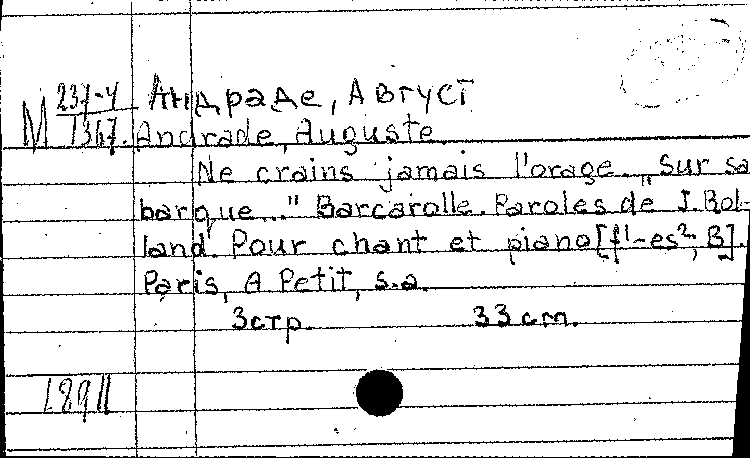 М 237-4 Андраде, Август
1367. Andrade, Auguste
Ne crains jamais l'orage. „Sur sa
barque..." Barcarolle. Paroles de J. Rol-
land. Pour chant et piano [f¹-es², B].
Paris, A Petit, s.a.
3 стр. 33 cm.